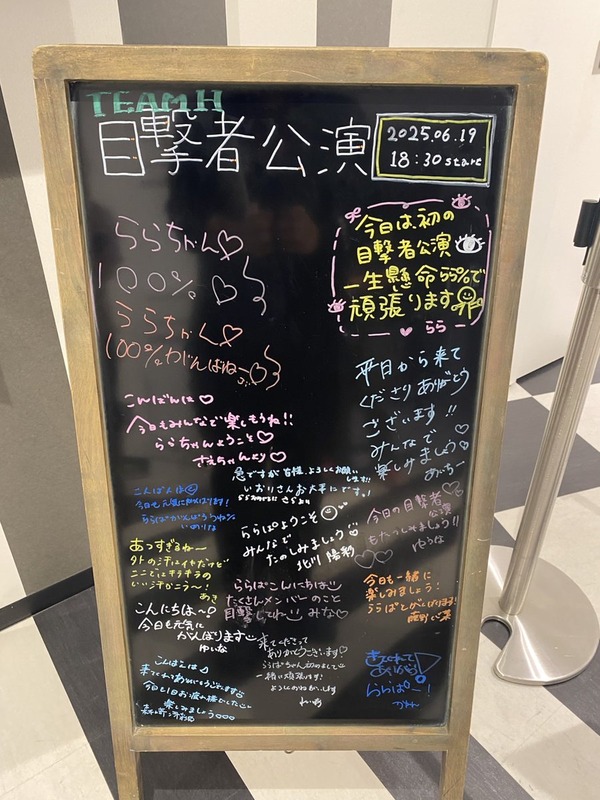 TEAM H
目撃者公演
2025.06.19
18:30 start
今日は初の
目撃者公演
一生懸命ららパで
頑張ります
らら
ららちゃん♡
100%♡
ららちゃん♡
100%
平日から来て
くださりありがとう
ございます!!
みんなで
楽しみましょう♡
めいちー
こんばんは♡
今日もみんなで楽しもうね!!
ららちゃんようこそ♡
さえちゃんより♡
急ですが皆様、よろしくお願い
します!!
いおりさんお大事にです!
こんばんは
今日も元気に頑張ります!
いのりな
ららぱようこそ
みんなで
たのしみましょう♡
北川 陽彩
今日の目撃者
公演
もたのしみましょう!!
ゆうな
あつすぎるねー
外の汗はイヤだけど
ここではキラキラの
いい汗かこう〜!
あき
こんにちは〜
今日も元気に
がんばります
ゆいな
ららぱこんにちは
たくさんメンバーのこと
目撃してね みな♡
今日も一緒に
楽しみましょう!
来てくださって
ありがとうございます♡
一緒に頑張ります!
よろしくおねがいします
こんばんは♪
楽しみましょう
きてくれて
ありがとう!
ららぱー!